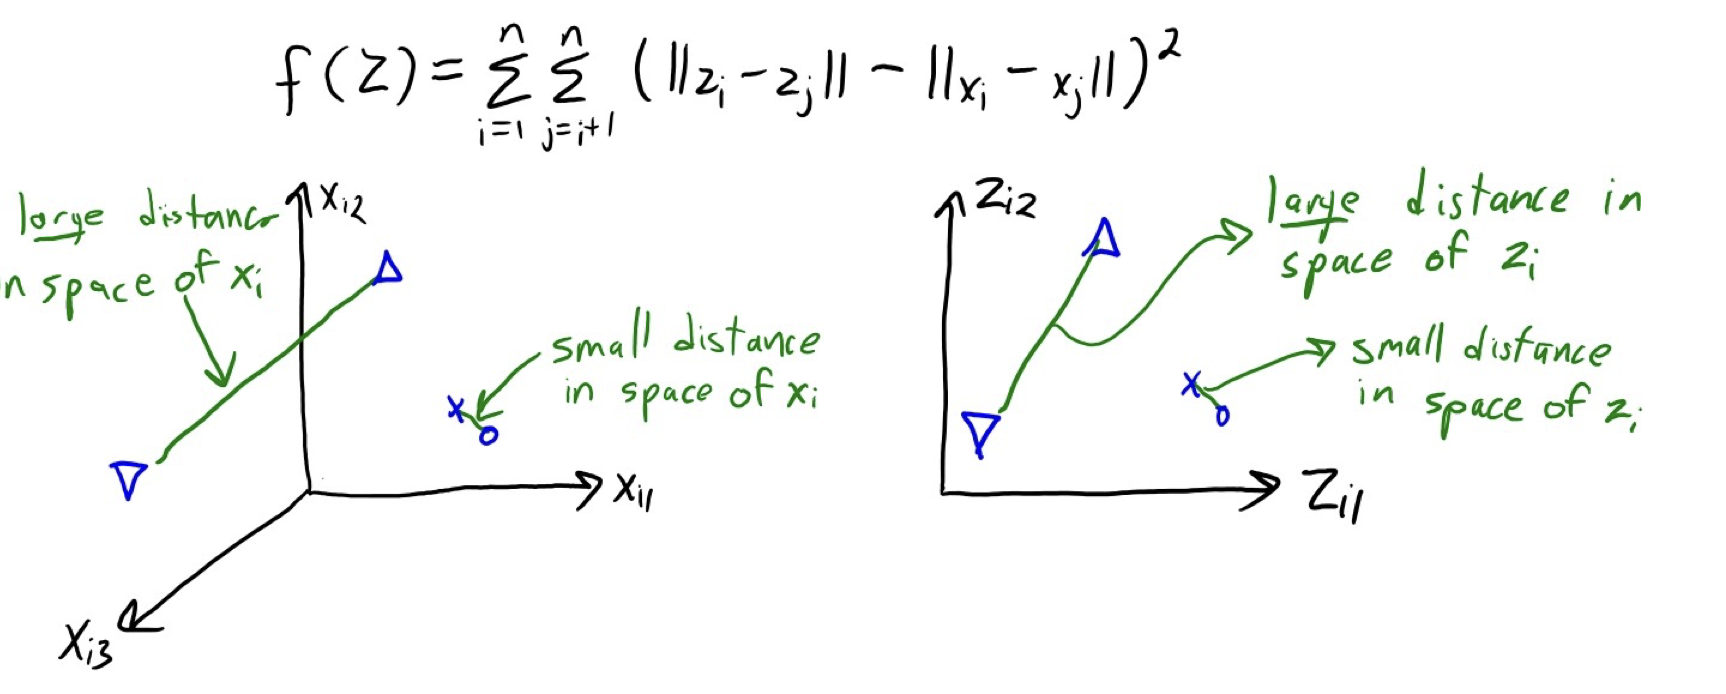 f(Z) = n∑i=1 n∑j=i+1 (||zi - zj|| - ||xi - xj||)²
large distance
in space of xi
xi2
small distance
in space of xi
xi1
xi3
zi2
large distance in
space of zi
small distance
in space of zi
zi1